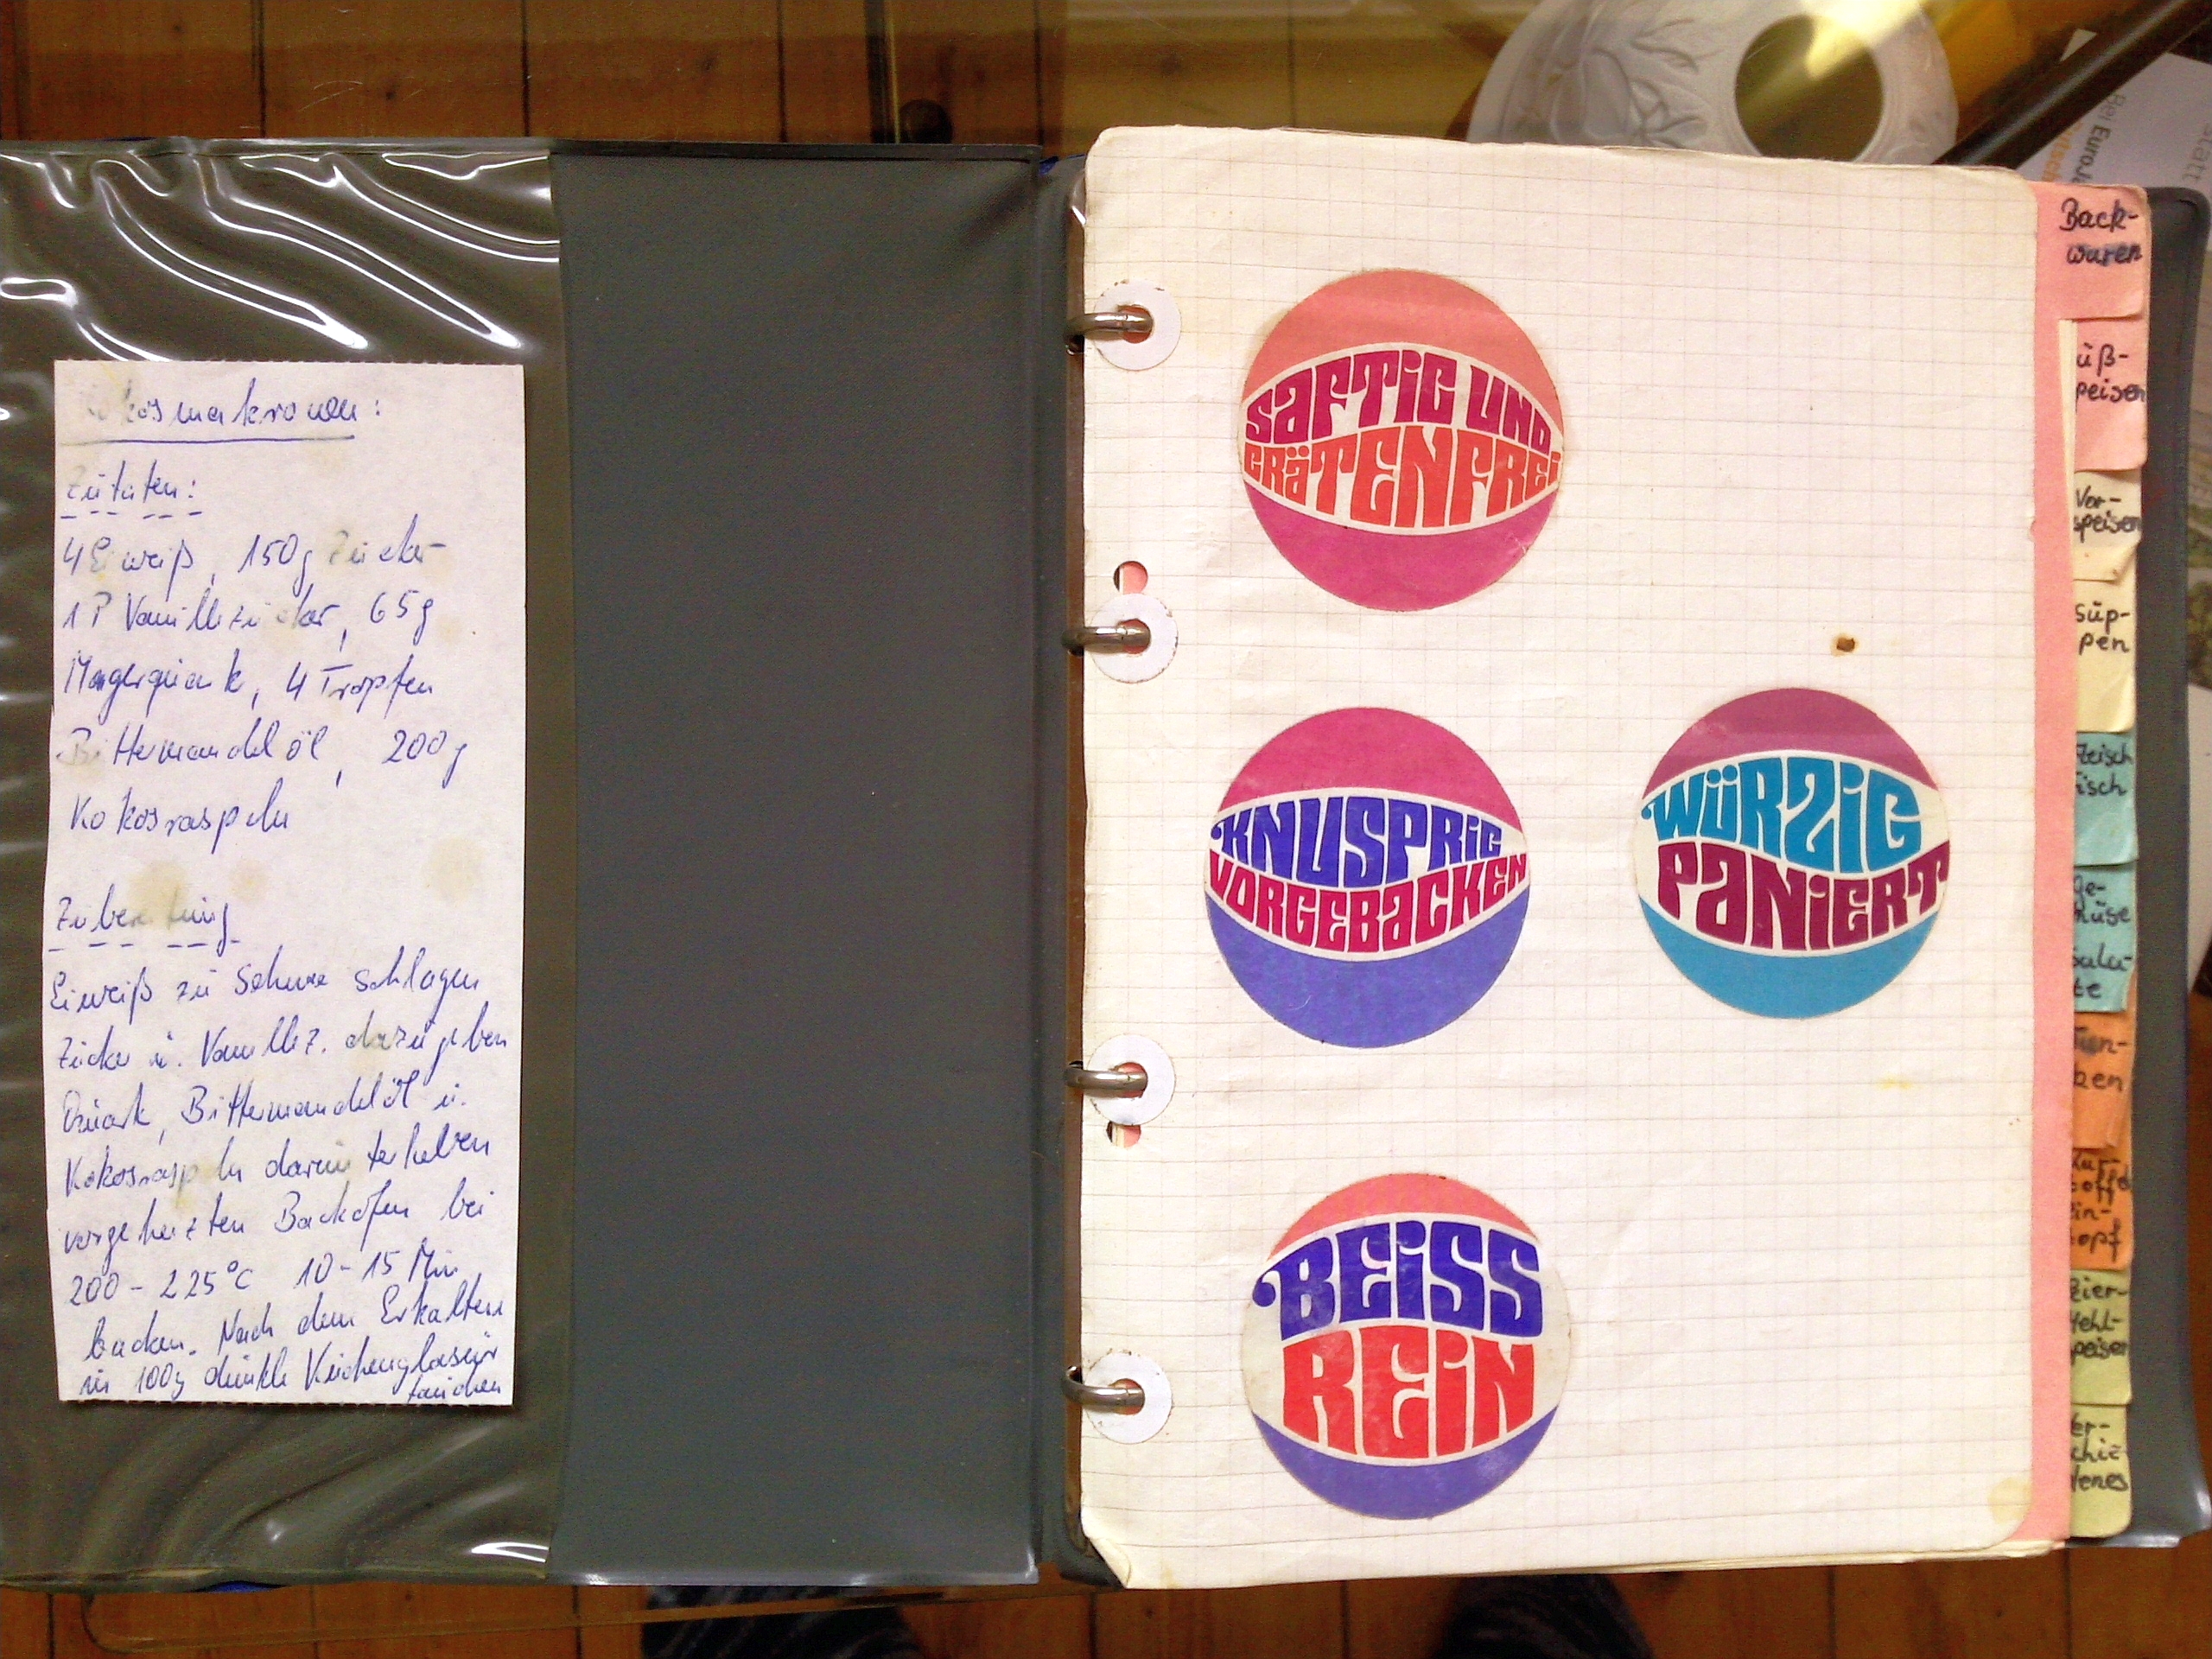 Kokosmakronen:
Zutaten:
4 Eiweiß, 150g Zucker
1 P Vanillezucker, 65g
Magerquark, 4 Tropfen
Bittermandelöl, 200g
Kokosraspeln
Zubereitung
Eiweiß zu Schnee schlagen
Zucker u. Vanillez. dazugeben
Quark, Bittermandelöl u.
Kokosraspeln darunterheben
vorgeheizten Backofen bei
200 - 225°C 10 - 15 Min
backen. Nach dem Erkalten
in 100g dunkle Kuchenglasur
tauchen
SAFTIG UND
GRÄTENFREI
KNUSPRIG
VORGEBACKEN
WÜRZIG
PANIERT
BEISS
REIN
Back-
waren
üß-
peisen
Vor-
speisen
Sup-
pen
leisch
isch
ge-
müse
Sala-
te
ken
in-
topf
Eier-
Mehl-
speisen
er-
chie-
denes
Bei EuroJa